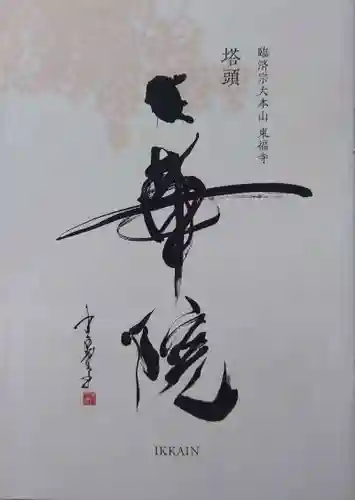 臨済宗大本山 東福寺
塔頭
一華院
IKKAIN